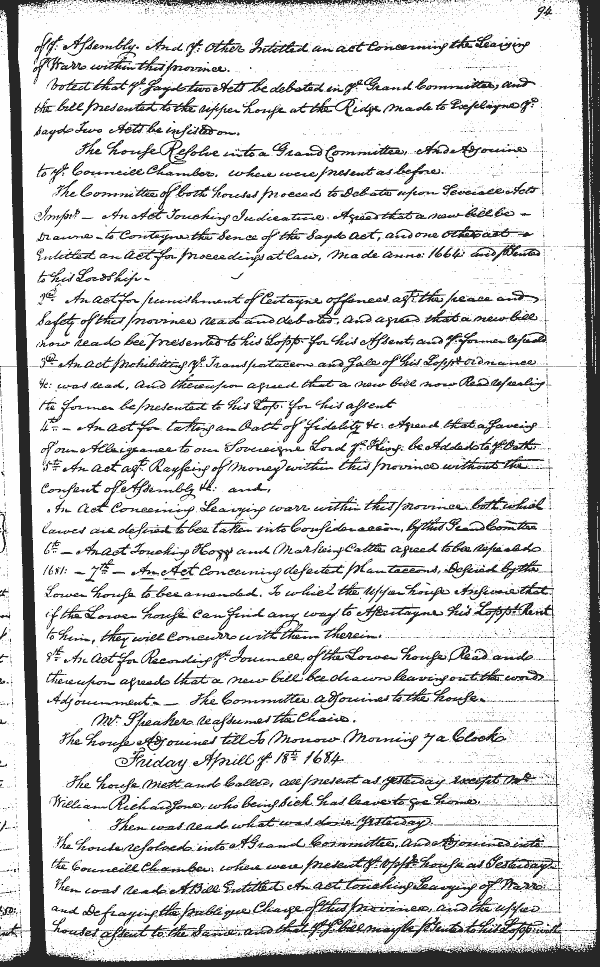 94
of ye. Assembly. And ye. other Intitled an act Concerning the Leaving
of Warr within this province.
Voted that ye. Sayd two Acts be debated in ye. Grand Committee, and
the bill presented to the upper house at the Ridge made to Explayne ye.
sayd Two Acts be insisted on.
The house Resolve into a Grand Committee, And Adjourne
to ye. Councill Chamber. where were present as before.
The Committee of both houses proceed to Debate upon Severall Acts
Impris — An Act Touching Indicature. Agreed that a new bill be
Drawne to Contayne the Sence of the Sayd Act, and one other act
Entitled an Act for proceedings at Law, made anno: 1664 and psented
to his Lordship.
2d. An act for punishment of Certayne offences agt. the peace and
Safety of this province read and debated, and agreed that a new bill
now read bee presented to his Lopp. for his Assent, and ye. former
3d. An act prohibiting ye. Transportacon and Sale of his Lopps. ordnance
&c: was read, and thereupon agreed that a new bill now Read repealing
the former be presented to his Lop: for his assent
4th. — An act for taking an Oath of fidelity &c: Agreed that a Saveing
of our Alleigeance to our Soveraigne Lord ye. King. be Added to ye. Oath.
5th. An act agt. Raysing of Money within this province without the
Consent of Assembly &c. and,
An Act Concerning Leavying warr within this province both which
lawes are desired to bee taken into Consideracion, by this Grand Comttee
6th — An act Touching Hoggs and Marking Cattle agreed to bee repealed
1681: — 7th — An Act Concerning deserted plantacons, Desired by the
Lower house to bee amended. To which the upper house Answere that
if the Lower house can find any way to Ascertayne his Lopps. Rent
to him, they will Concurr with them therein.
8th. An Act for Recording ye. Journall of the Lower house Read and
thereupon agreed that a new bill bee drawn leaving out the word
Adjournment. — The Committee adjournes to the house.
Mr. Speaker reassumes the Chaire.
The house Adjournes till To Morrow Morning 7 a Clock
Friday Aprill ye. 18th. 1684
The house mett and Called, all present as yesterday except Mr.
William Richardsone, who being sick has leave to goe home.
Then was read what was done yesterday
The house resolved into a Grand Committee, and Adjourned into
the Councill Chamber, where were present ye. uppr. house as Yesterday
Then was read A Bill Entitled An act touching Leavying of Warr
and Defraying the publique Charge of this Province, and the upper
houses assent to the Same, and that ye. sd. bill may be psented to his Lopp with